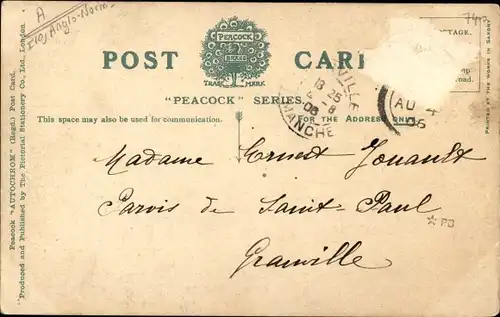 A
Iles Anglo-Norm.
74
POST CARD
PEACOCK
BRAND
TRADE MARK
"PEACOCK" SERIES.
This space may also be used for communication.
FOR THE ADDRESS ONLY
VILLE
18 25
4 - 8
08
MANCHE
AU 4
06
TAGE.
Madame Ernest Jouault
Parvis de Saint-Paul
Granville
PB
Peacock "AUTOCHROM" (Regd.) Post Card.
Produced and Published by The Pictorial Stationery Co., Ltd., London.
PRINTED AT THE WORKS IN SAXONY